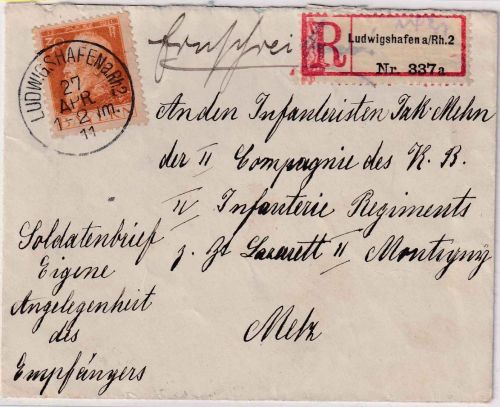 LUDWIGSHAFEN a. RH. 2
27
APR.
1-2 Nm.
11
Einschreiben
R
Ludwigshafen a/Rh. 2
Nr. 337a
An den Infanteristen Jak. Mehn
der II Compagnie des K. B.
IV Infanterie Regiments
z. Zt Lazarett II Montigny
Metz
Soldatenbrief
Eigene
Angelegenheit
des
Empfängers